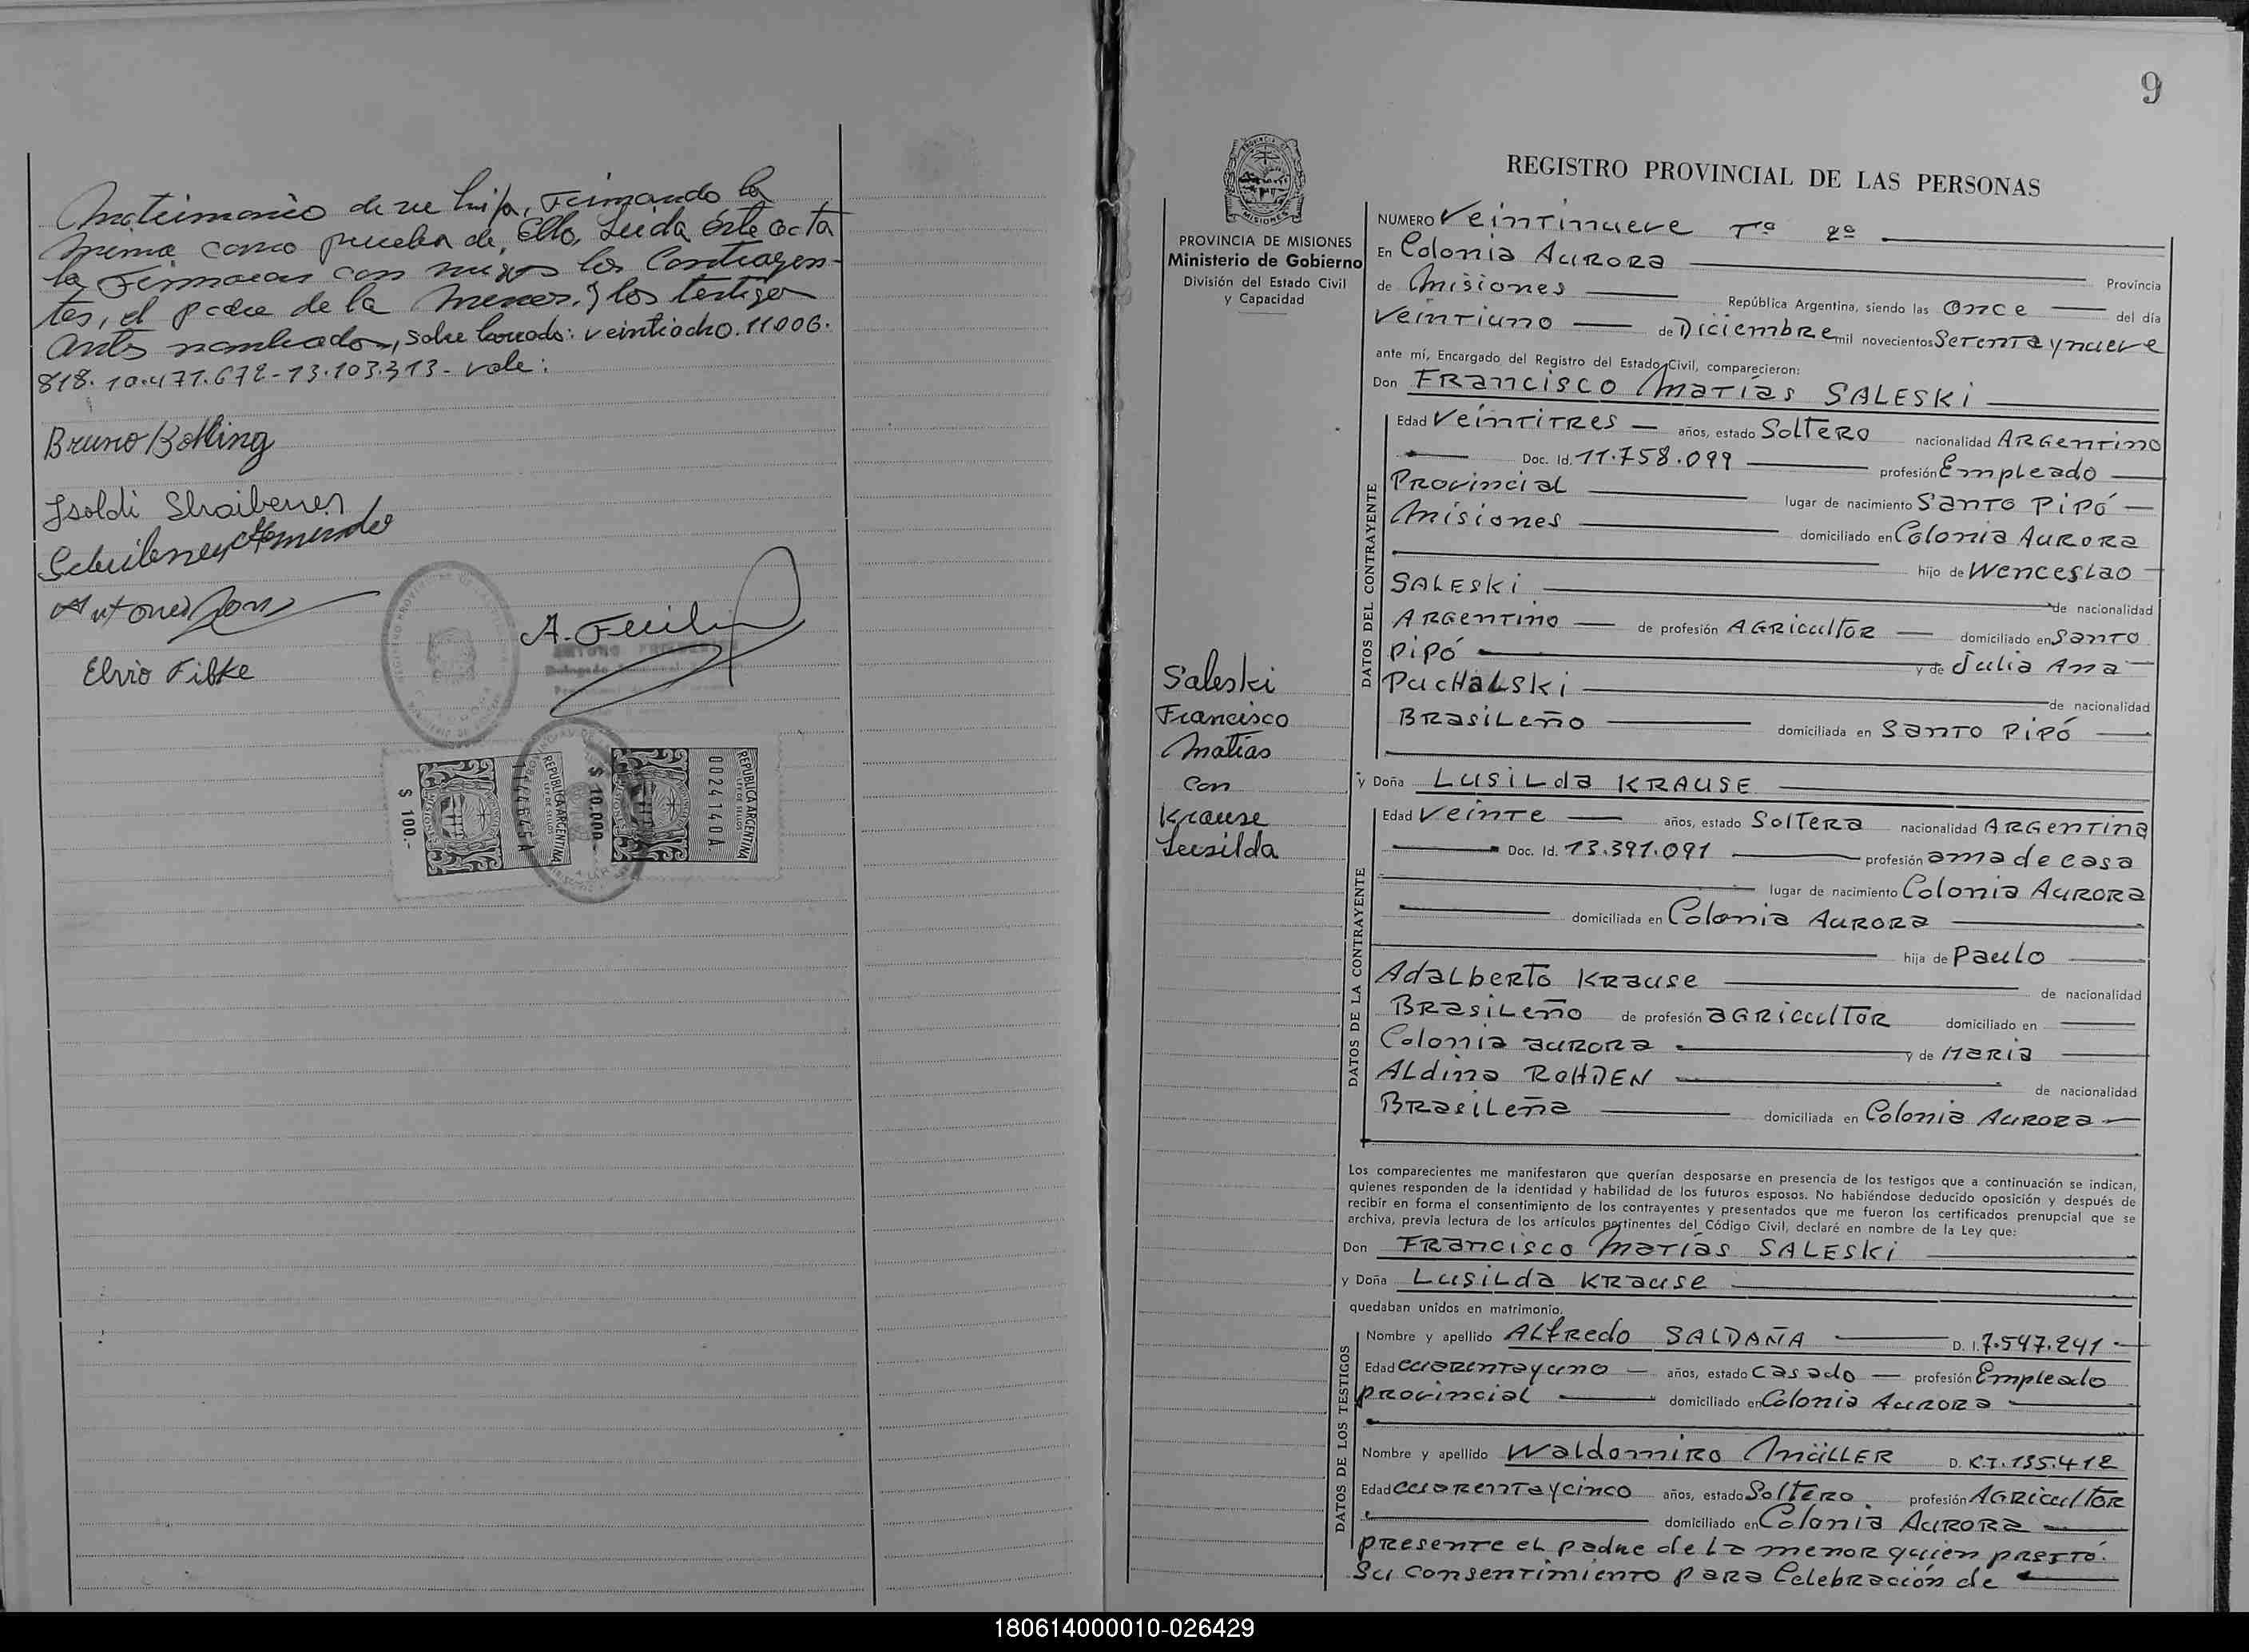 Matrimonio de su hija, Firmando la
misma como prueba de, Ello, Leida Este acta
la Firmaran con migo los Contrayen-
tes, el padre de la menor. y los testigos
antes nombrados, sobre borrado: veintiocho. 11.006.
818. 10.471.672-13.103.313- vale:
Bruno Bolling
Isoldi
Antonio
Elvio Fibke
A.
REPUBLICA ARGENTINA
$ 100.-
REPUBLICA ARGENTINA
0024140A
$ 10.000.-
9
REGISTRO PROVINCIAL DE LAS PERSONAS
PROVINCIA DE MISIONES
Ministerio de Gobierno
División del Estado Civil
y Capacidad
Saleski
Francisco
Matías
con
Krause
Lusilda
NUMERO Veintinueve Tº 2º
En Colonia AURORA
Provincia
de Misiones República Argentina, siendo las Once del día
Veintiuno de Diciembre mil novecientos Setenta y nueve
ante mí, Encargado del Registro del Estado Civil, comparecieron:
Don FRancisco Matías SALESKi
DATOS DEL CONTRAYENTE
Edad VeintiTRes años, estado SolTeRo nacionalidad ARGentino
Doc. Id. 11.758.099 profesión Empleado
PRovincial lugar de nacimiento Santo Pipó
Misiones domiciliado en Colonia AURORa
hijo de Wenceslao
SALESKi de nacionalidad
ARGentino de profesión AGRicultor domiciliado en Santo
Pipó y de Julia Ana
PucHaLSKi de nacionalidad
BRasiLeño domiciliada en Santo Pipó
y Doña LusiLda KRAUSE
DATOS DE LA CONTRAYENTE
Edad Veinte años, estado Soltera nacionalidad ARGentina
Doc. Id. 13.391.091 profesión ama de casa
lugar de nacimiento Colonia AURORa
domiciliada en Colonia AURORa
hija de Paulo
AdaLberto KRause de nacionalidad
BRasiLeño de profesión aGRicultor domiciliado en
Colonia aURORa y de MaRia
ALdina ROHDEN de nacionalidad
BRasiLeña domiciliada en Colonia AURORa
Los comparecientes me manifestaron que querían desposarse en presencia de los testigos que a continuación se indican,
quienes responden de la identidad y habilidad de los futuros esposos. No habiéndose deducido oposición y después de
recibir en forma el consentimiento de los contrayentes y presentados que me fueron los certificados prenupcial que se
archiva, previa lectura de los artículos pertinentes del Código Civil, declaré en nombre de la Ley que:
Don FRancisco Matías SALESKi
y Doña LusiLda KRause
quedaban unidos en matrimonio.
DATOS DE LOS TESTIGOS
Nombre y apellido ALfRedo SALDAÑA D. I. 7.547.241
Edad cuarenta y uno años, estado casado profesión Empleado
provincial domiciliado en Colonia AuRORa
Nombre y apellido Waldomiro MüLLER D. K.I. 135.412
Edad cuarenta y cinco años, estado Soltero profesión AGRicultor
domiciliado en Colonia AURORa
presente el padre de La menor quien prestó
Su consentimiento para Celebración de
180614000010-026429